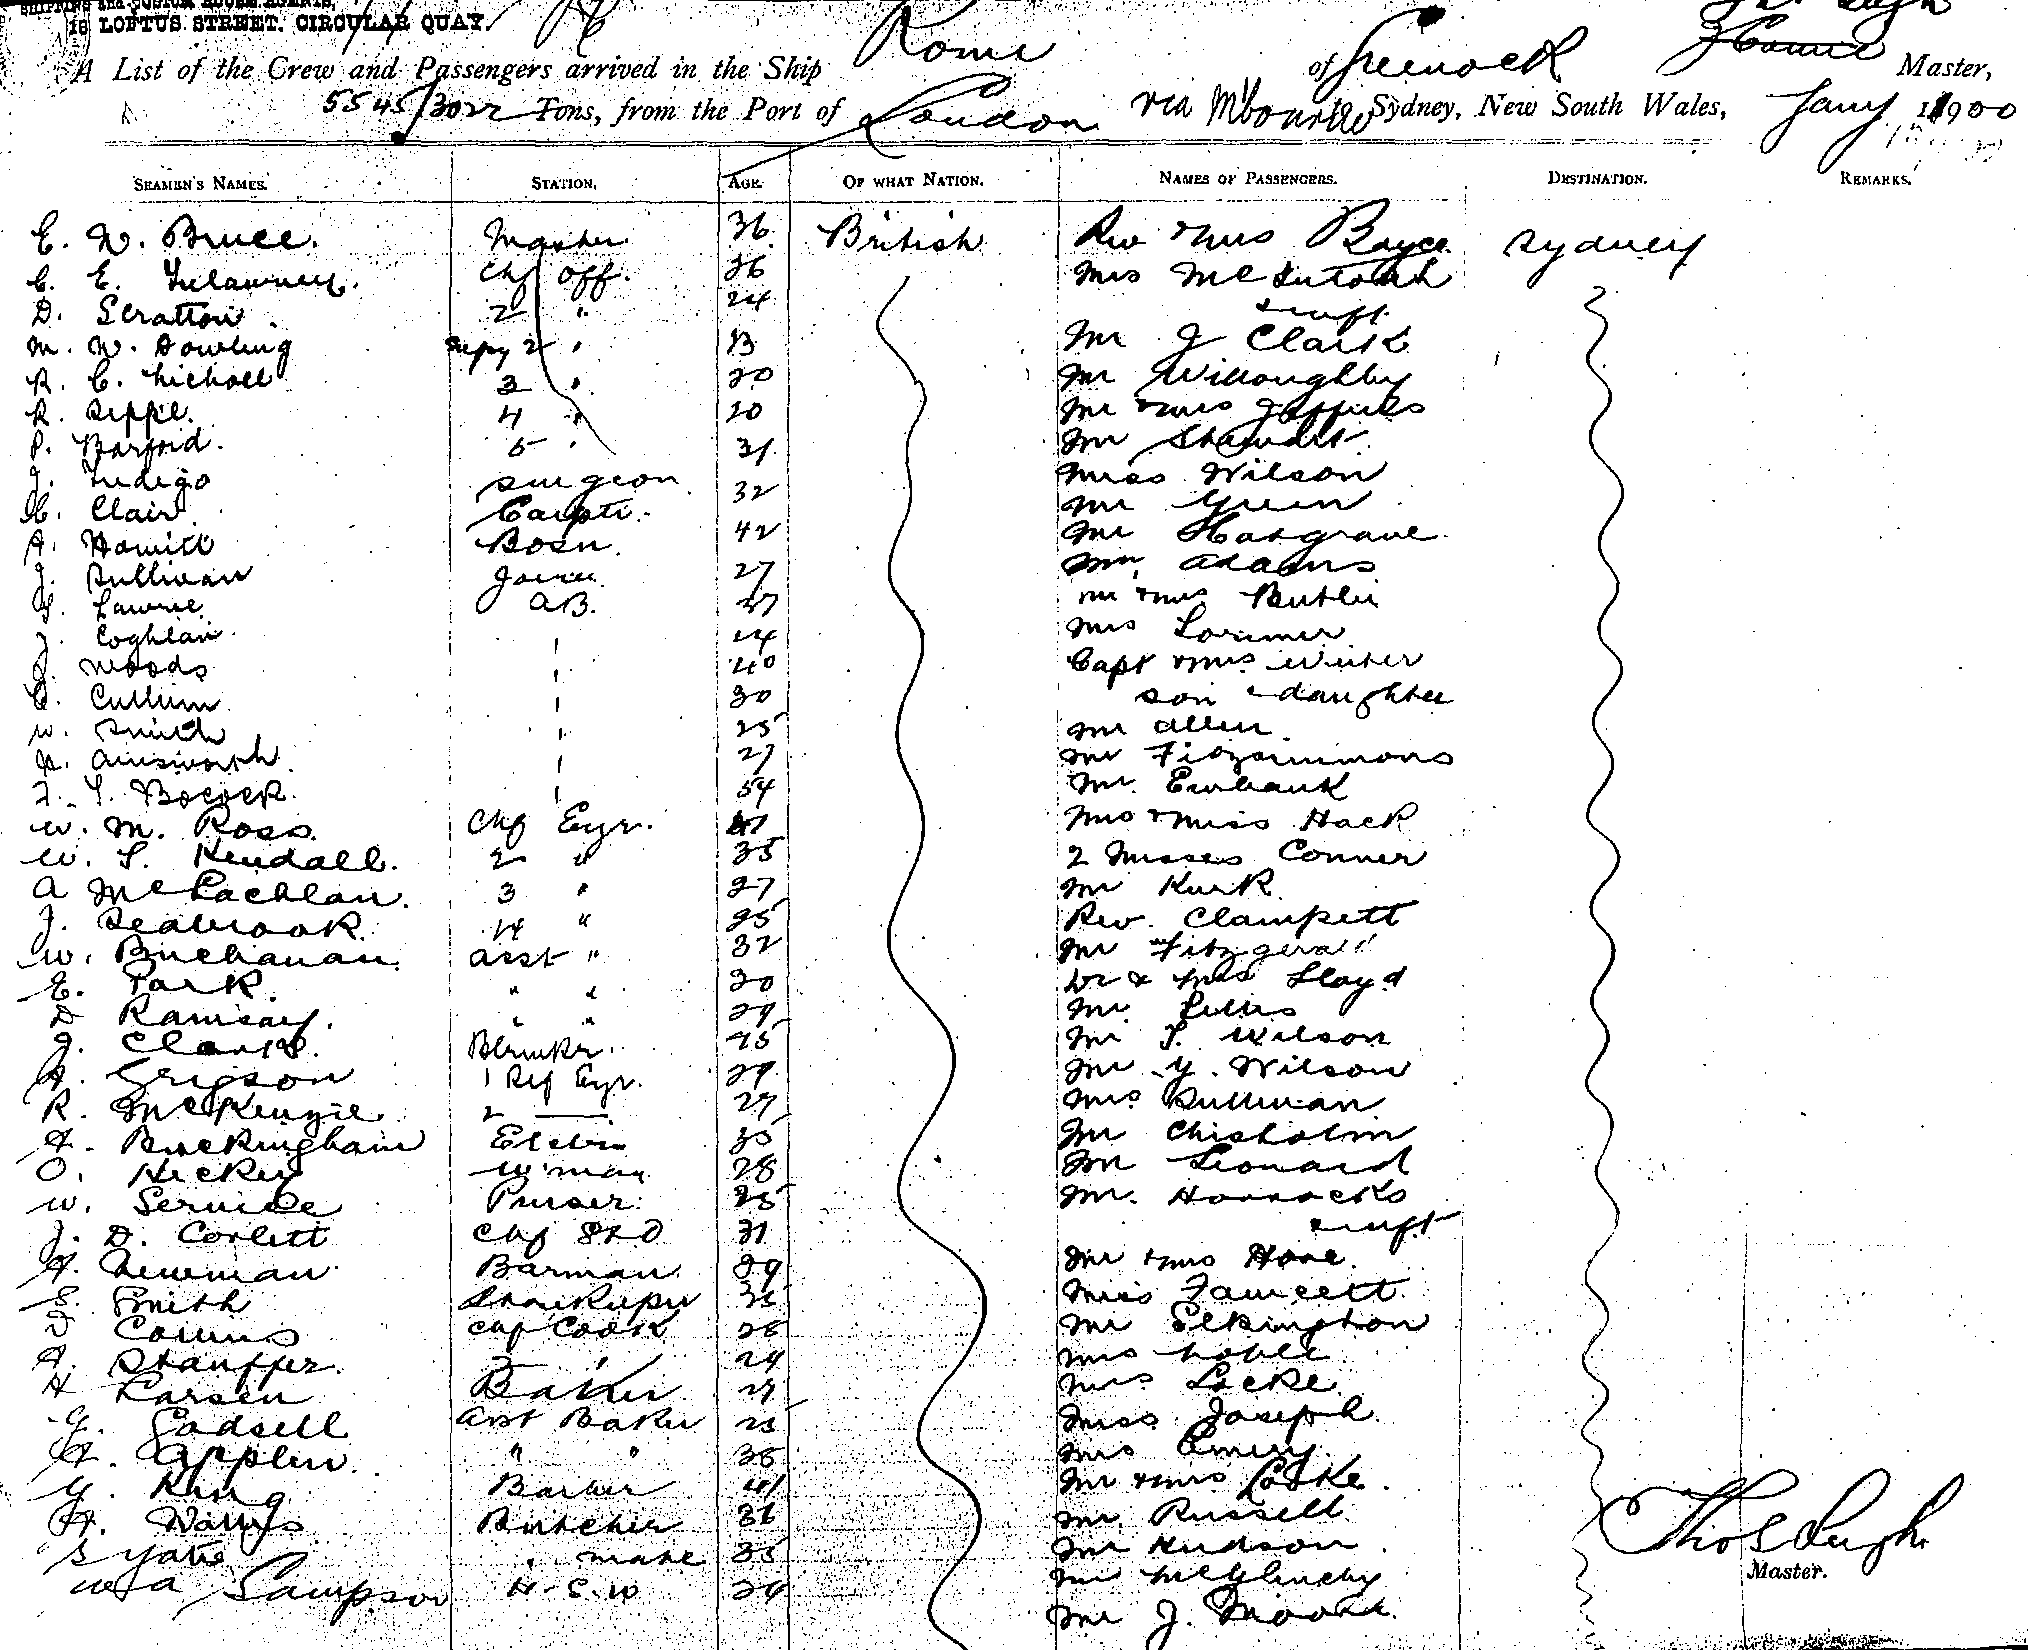 SHIPPING AND CUSTOM HOUSE AGENTS,
18 LOFTUS STREET, CIRCULAR QUAY.
A List of the Crew and Passengers arrived in the Ship Rome of Greenock Master,
5545/3022 Tons, from the Port of London via M'bourne Sydney, New South Wales, Jany 1900
SEAMEN'S NAMES. STATION. AGE. OF WHAT NATION. NAMES OF PASSENGERS. DESTINATION. REMARKS.
E. W. Bruce. Master 36 British Rev & Mrs Boyce Sydney
C. E. Trelawney. Chf Off. 26 Mrs McIntosh
D. Scratton. 2 " 24 & inft
M. W. Dowling Supy 2 " Mr J Clark
R. C. Nicholl 3 " 20 Mr Willoughby
R. Sipple. 4 " 20 Mr & Mrs Jeffries
P. Barford. 5 " 31 Mr Stewart
J. Indigo Surgeon Miss Wilson
C. Clair Carptr. 32 Mr Green
A. Howitt Bosn. 42 Mr Hargrave
J. Sullivan Joiner 27 Mr Adams
Lawrie A.B. 37 Mr & Mrs Butler
J. Coghlan " 24 Mrs Lorimer
J. Woods " 40 Capt & Mrs Winter
C. Cullum " 30 son & daughter
W. Smith " 25 Mr Allen
Ainsworth " 27 Mr Fitzsimmons
Bocock " 54 Mr. Ewbank
W. M. Ross Chf Engr. Mrs & Miss Hack
W. S. Kendall. 2 " 35 2 Misses Conner
A McLachlan. 3 " 27 Mr Kirk
J. Seabrook. 4 " 25 Rev. Clampett
W. Buchanan. Asst " 32 Mr Fitzgerald
E. Park. " " 30 Dr & Mrs Lloyd
D Ramsay. " " 29 Mr
J. Clark Blrmkr. 25 Mr S. Wilson
A. Grigson 1 Ref Engr. 29 Mr G. Wilson
R. McKenzie 2 —— 27 Mrs Sullivan
A. Buckingham Electrn 35 Mr Chisholm
O. Hickey W'man 28 Mr Leonard
W. Service Purser 25 Mr. Horrocks
J. D. Corlett Chf Std 31 & inft
A. Newman Barman 29 Mr & Mrs Hore.
S. Smith Storekeeper 35 Miss Fawcett
Chf Cook 26 Mr Elkington
A. Stauffer. 2 " 24 Mrs Noble
H Larsen Baker 27 Mrs Locke
G. Godsell Asst Baker 25 Miss Joseph
A. Applin " " 36 Mrs Emery.
G. King Barber 41 Mr & Mrs Cooke.
H. Butcher 36 Mr. Russell
S Yates " mate 35 Mr Hudson
W A Sampson H.S.W 24 Mr McGlinchy
Mr J. Moore.
Thos Leigh
Master.